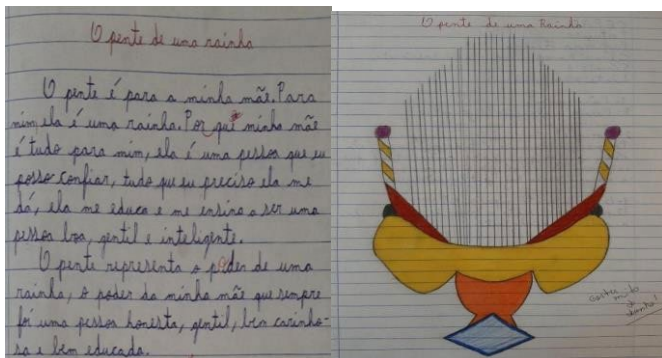 O pente de uma rainha
O pente é para a minha mãe. Para
mim, ela é uma rainha. Por que minha mãe
é tudo para mim, ela é uma pessoa que eu
posso confiar, tudo que eu preciso ela me
dá, ela me educa e me ensina a ser uma
pessoa boa, gentil e inteligente.
O pente representa o poder de uma
rainha, o poder da minha mãe que sempre
foi uma pessoa honesta, gentil, bem carinho-
sa e bem educada.
O pente de uma Rainha
Gostei
muito
do
desenho!